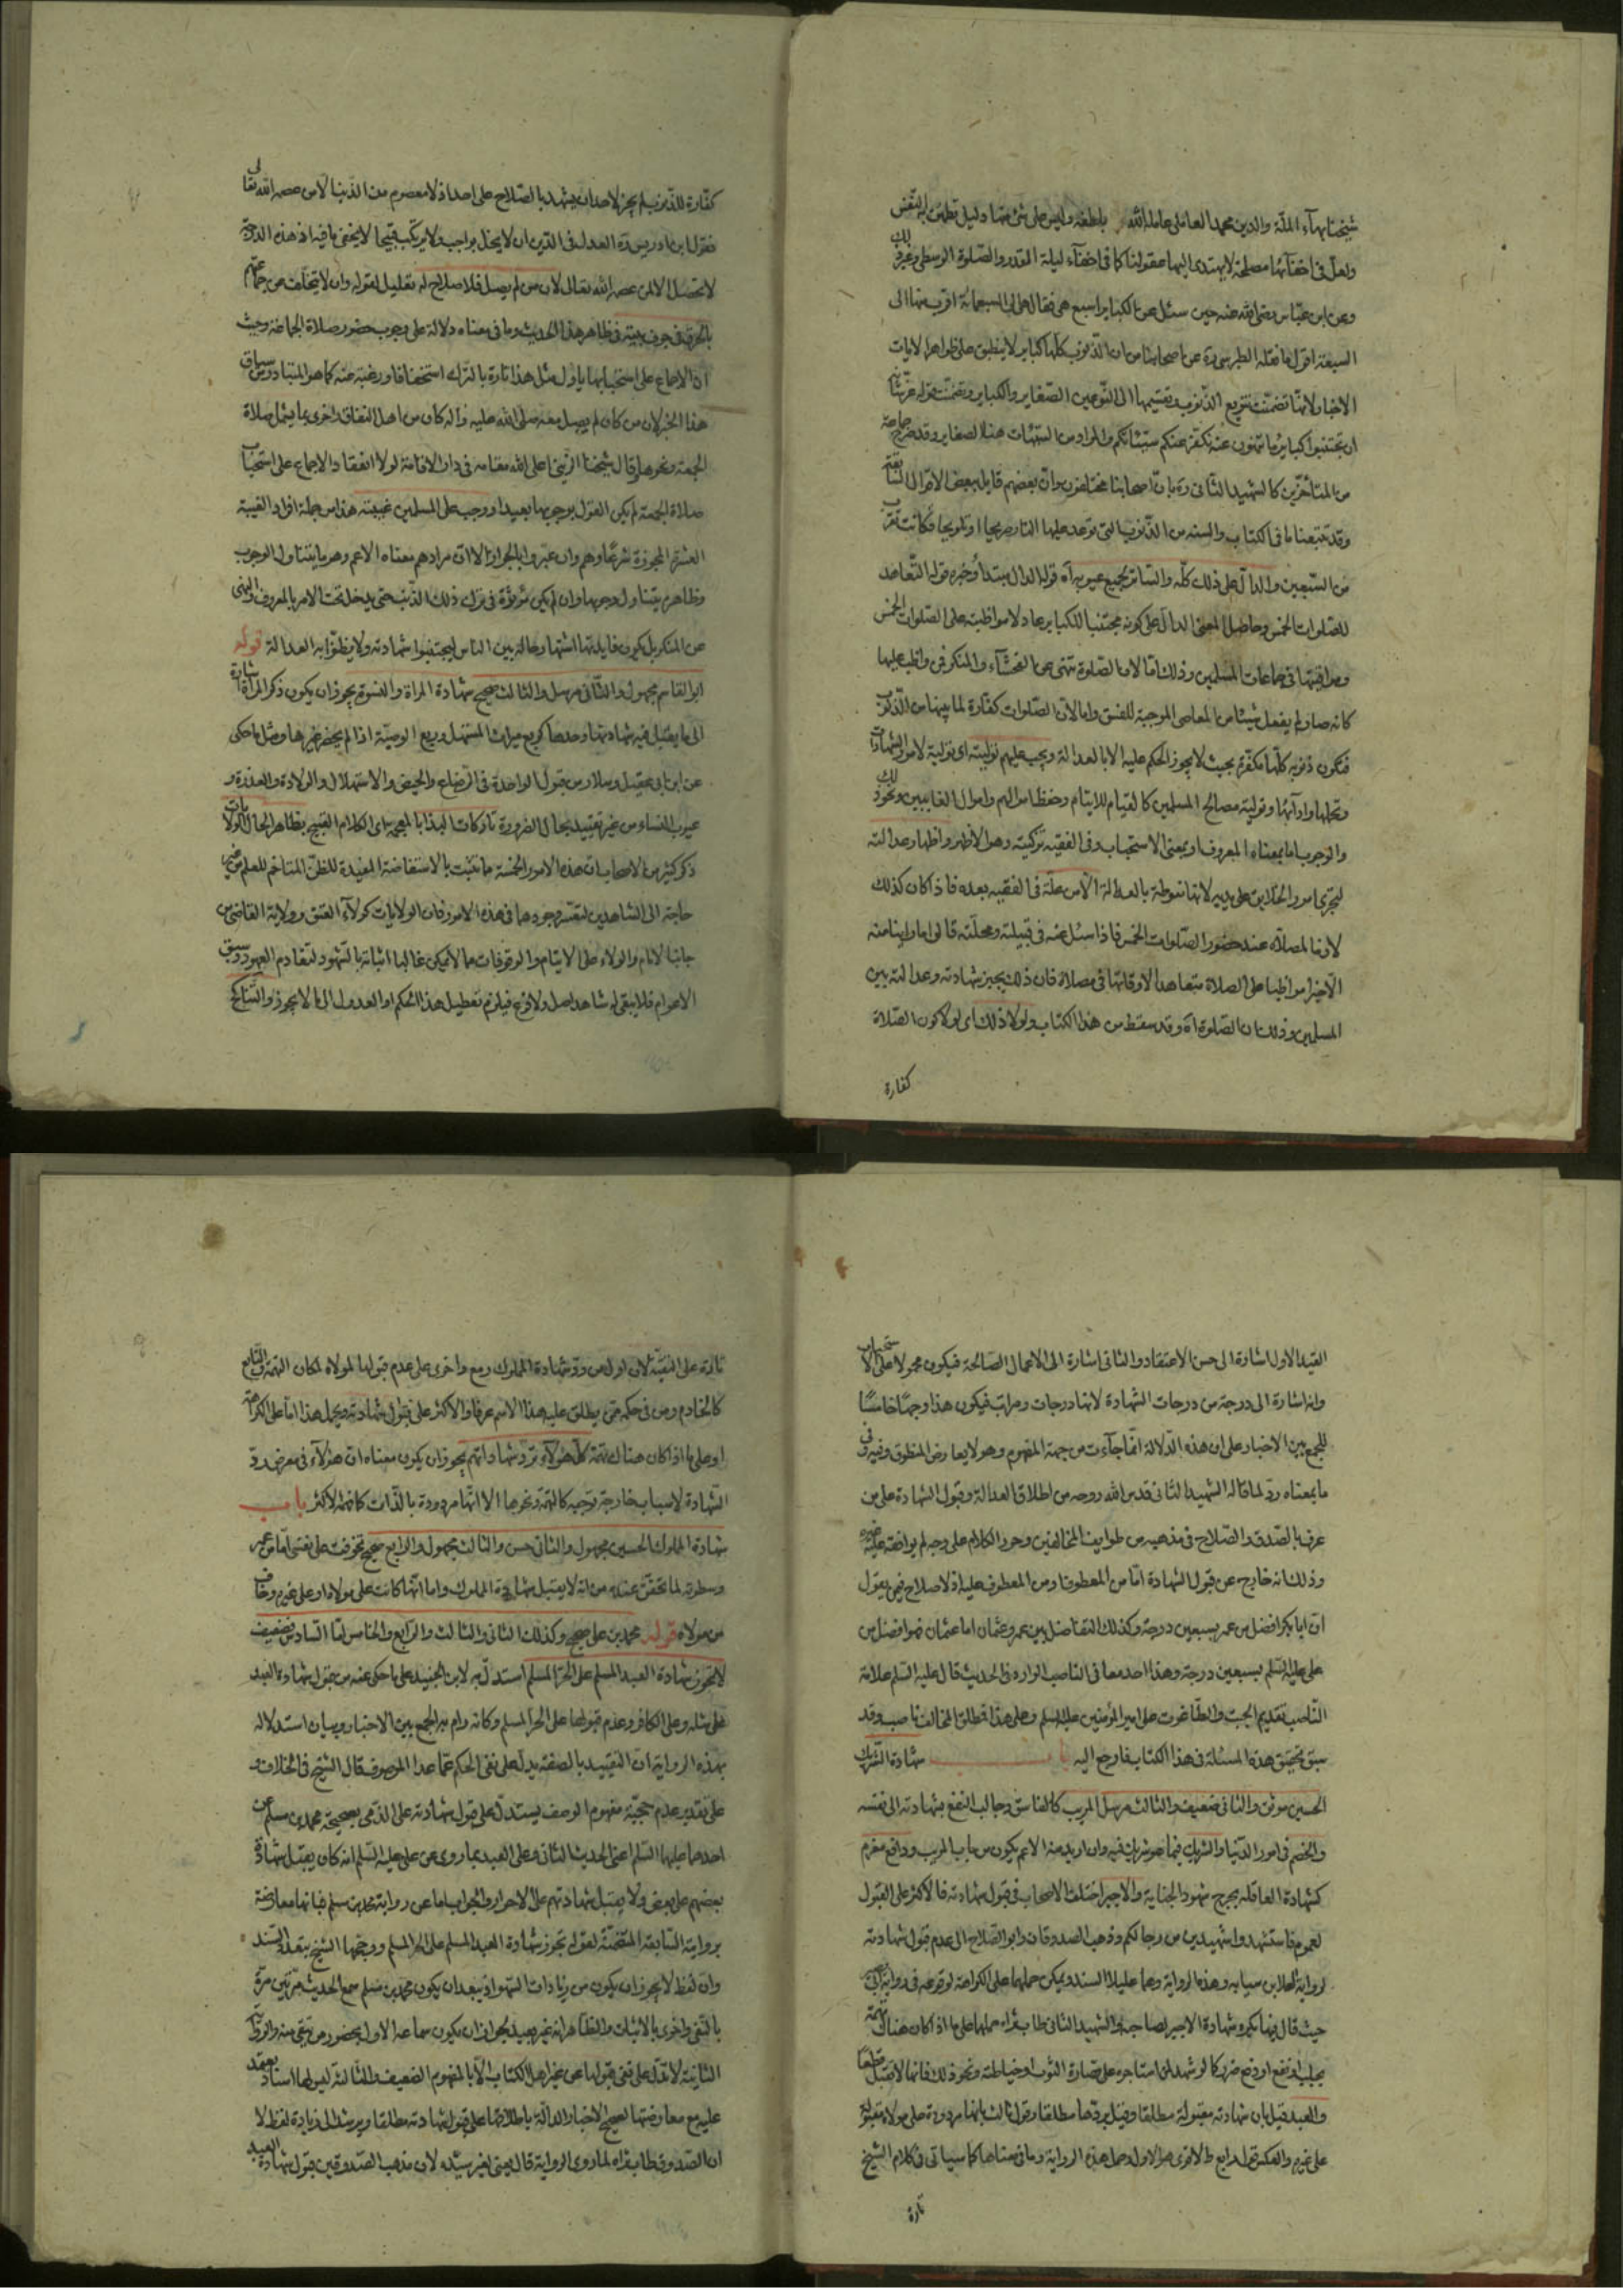 شيخنا بهآء الملة والدين محمد العاملى عامله الله بلطفه وليس على شئ منها دليل تطمئن به النفس
ولعل فى اخفآئها مصلحة لا يهتدى اليها عقولنا كما فى اخفآء ليلة القدر والصلوة الوسطى وغير ذلك
وعن ابن عباس رضى الله عنه حين سئل عن الكباير اسبع هى فقال هى الى السبعمائة اقرب منها الى
السبعة اقول ما نقله الطبرسى ره عن اصحابنا من ان الذنوب كلها كباير لا ينطبق على ظواهر الايات
الاخبار لانها تضمنت تنويع الذنوب وتقسيمها الى النوعين الصغاير والكباير وتضمنت قوله عز شأنه
ان تجتنبوا كباير ما تنهون عنه نكفر عنكم سيئاتكم والمراد من السيئات هنا الصغاير وقد صرح جماعة
من المتأخرين كالشهيد الثانى ره بان اصحابنا مختلفون وان بعضهم قايل ببعض الاقوال السابقة
وقد تتبعنا ما فى الكتاب والسنه من الذنوب التى توعد عليها النار صريحا او تلويحا فكانت تقرب
من السبعين والدال على ذلك كله والساتر لجميع عيوبه آه قوله الدال مبتدأ وخبره قوله التعاهد
للصلوات الخمس وحاصل المعنى الدال على كونه مجتنبا للكباير عاد لا مواظبته على الصلوات الخمس
ومواقيتها فى جماعات المسلمين وذلك اما لان الصلوة تنهى عن الفحشآء والمنكر فمن واظب عليها
كانه صار لم يفعل شيئا من المعاصى الموجبة للفسق واما لان الصلوات كفارة لما بينها من الذنوب
فتكون ذنوبه كلها مكفرة بحيث لا يجوز الحكم عليه الا بالعدالة ويجب عليهم توليته اى توليه لامور الشهادات
وتحملها وادآئها وتوليته مصالح المسلمين كالقيام للايتام وحفظ اموالهم واموال الغايبين ونحو ذلك
والوجوب اما بمعناه المعروف او بمعنى الاستحباب وفى الفقيه تزكيته وهو الاظهر واظهار عدالته
لتجرى امور الخلايق على يديه لانها منوطة بالعدالة الا من علة فى الفقيه بعده فاذا كان كذلك
لازما لمصلاه عند حضور الصلوات الخمس فاذا سئل عنه فى قبيلته ومحلته قالوا ما راينا منه
الا خيرا مواظبا على الصلاة متعاهدا لاوقاتها فى مصلاه فان ذلك يجيز شهادته وعدالته بين
المسلمين وذلك ان الصلوة آه وقد سقط من هذا الكتاب ولولا ذلك اى لولا كون الصلاة
كفارة
كفارة للذنوب لم يجز لاحد ان يشهد بالصلاح على احد اذ لا معصوم من الذنب الا من عصمه الله تعالى
فقول ابن ادريس ره العدل فى الدين ان لا يخل بواجب ولا يرتكب قبيحا لا يخفى ما فيه اذ هذه الدرجة
لا تحصل الا لمن عصمه الله تعالى لان من لم يصل فلا صلاح له تعليل لقوله وان لا يتخلف عن جماعتهم
بالحرق فى جوف بيته فى ظاهر هذا الحديث وما فى معناه دلالة على وجوب حضور صلاة الجماعة وحيث
ان الاجماع على استحبابها ياول مثل هذا تارة بالترك استخفافا ورغبة عنه كما هو المتبادر من سياق
هذا الخبر لان من كان لم يصل معه صلى الله عليه واله كان من اهل النفاق واخرى بما يشمل صلاة
الجمعة ونحوها قال شيخنا الزينى اعلى الله مقامه فى دار الاقامة لولا انعقاد الاجماع على استحباب
صلاة الجمعة لم يكن القول بوجوبها بعيدا ووجب على المسلمين غيبته هذا من جملة افراد الغيبة
العشرة المجوزة شرعا وهم وان عبروا بالجواز الا ان مرادهم معناه الاعم وهو ما يتناول الوجوب
وظاهره يتناول وجوبها وان لم يكن مؤثرة فى ترك ذلك الذنب حتى يدخل تحت الامر بالمعروف والنهى
عن المنكر بل يكون فايدتها اشتهار حاله بين الناس ليجتنبوا شهادته ولا يظنوا به العدالة قوله
ابو القاسم مجهول والثانى مرسل والثالث صحيح شهادة المراة والنسوة يجوز ان يكون ذكر المراة اشارة
الى ما يقبل فيه شهادتها وحدها كربع ميراث المستهل وربع الوصية اذا لم يحضر غيرها ومثل ما حكى
عن ابن ابى عقيل وسلار من قبول الواحدة فى الرضاع والحيض والاستهلال والولادة والعذرة و
عيوب النساء من غير تقييد بحال الضرورة تاركات البذا بالمعجمة اى الكلام القبيح بظاهر الحال الولايات
ذكر كثير من الاصحاب ان هذه الامور الخمسة مما تثبت بالاستفاضة المفيدة للظن المتاخم للعلم من غير
حاجة الى الشاهدين لتعسر وجودهما فى هذه الامور فان الولايات كولآء العتق وولاية القاضى من
جانب الامام والولاء على الايتام والوقوفات مما لا يمكن غالبا اثباته بالشهود لتقادم العهود وسبق
الاعوام فلا يبقى له شاهد اصل ولا فرع فيلزم تعطيل هذا الحكم او العدول الى ما لا يجوز والتناكح
القيد الاول اشارة الى حسن الاعتقاد والثانى اشارة الى الاعمال الصالحة فيكون محمولا على الاستحباب
وانه اشارة الى درجة من درجات الشهادة لانها درجات ومراتب فيكون هذا وجها خامسا
للجمع بين الاخبار على ان هذه الدلالة انما جآءت من جهة المفهوم وهو لا يعارض المنطوق وفيه وفى
ما بمعناه رد لما قاله الشهيد الثانى قدس الله روحه من اطلاق العدالة وقبول الشهادة على من
عرف بالصدق والصلاح فى مذهبه من طوايف المخالفين وحرر الكلام على وجه لم يوافقه عليه غيره
وذلك انه خارج عن قبول الشهادة اما من المعطوف او من المعطوف عليه اذ لا صلاح فيمن يقول
ان ابا بكر افضل من عمر بسبعين درجة وكذلك التفاضل بين عمر وعثمان اما عثمان فهو افضل من
على عليه السلم بسبعين درجة وهذا احد معانى الناصب الوارد فى الحديث قال عليه السلم علامة
الناصب تقديم الجبت والطاغوت على امير المؤمنين عليه السلم وعلى هذا فمطلق المخالف ناصب وقد
سبق تحقيق هذه المسئلة فى هذا الكتاب فارجع اليه باب شهادة الشريك
الحسين موثق والثانى ضعيف والثالث مرسل المريب كالفاسق وجالب النفع بشهادته الى نفسه
والخصم فى امور الدنيا والشريك فيما هو شريك فيه وان اريد منه الاعم يكون من باب المريب ودافع مغرم
كشهادة العاقلة بجرح شهود الجناية والاجير اختلف الاصحاب فى قبول شهادته فالاكثر على القبول
لعموم فاستشهدوا شهيدين من رجالكم وذهب الصدوقان وابو الصلاح الى عدم قبول شهادته
لرواية العلا بن سيابه وهذه الرواية وهما عليلا السند ويمكن حملهما على الكراهة لوقوعه فى رواية ابى بصير
حيث قال فيها يكره شهادة الاجير لصاحبه والشهيد الثانى طاب ثراه حملها على ما اذا كان هناك تهمة
بجلب نفع او دفع ضرر كما لو شهد لمن استاجره على قصارة الثوب او خياطته ونحو ذلك فانها لا تقبل قطعا
والعبد قيل بان شهادته مقبولة مطلقا وقيل بردها مطلقا وقول ثالث بانها مردودة على مولاه مقبولة
على غيره والعكس قول رابع والاقوى هو الاول وحمل هذه الرواية وما فى معناها كما سياتى فى كلام الشيخ
تارة
تارة على التقية لان اول من رد شهادة المملوك رمع واخرى على عدم قبولها لمولاه لمكان التهمة والتابع
كالخادم ومن فى حكمه ممن يطلق عليه هذا الاسم عرفا والاكثر على قبول شهادته ويحمل هذا اما على الكراهة
او على ما اذا كان هناك تهمة كل هؤلآء ترد شهاداتهم يجوز ان يكون معناه ان هؤلآء فى معرض رد
الشهادة لاسباب خارجة توجبه كالتهمة ونحوها الا انها مردودة بالذات كما فهمه الاكثر باب
شهادة المملوك الحسين مجهول والثانى حسن والثالث مجهول والرابع صحيح تخوفت على نفسى اما من عمر
وسطوته لما تحقق عنده من انه لا يقبل شهادة المملوك واما انها كانت على مولاه او على غيره وخاف
من مولاه قوله محمد بن على صحيح وكذلك الثانى والثالث والرابع والخامس اما السادس فضعيف
لا تجوز شهادة العبد المسلم على الحر المسلم استدل به لابن الجنيد على ما حكى عنه من قبول شهادة العبد
على مثله وعلى الكافر وعدم قبولها على الحر المسلم وكانه رام به الجمع بين الاخبار وبيان استدلاله
بهذه الرواية ان التقييد بالصفة يدل على نفى الحكم عما عدا الموصوف قال الشيخ فى الخلاف و
على تقدير عدم حجية مفهوم الوصف يستدل على قبول شهادته على الذمى بصحيحة محمد بن مسلم عن
احدهما عليهما السلم اعنى الحديث الثانى وعلى العبد بما روى عن على عليه السلم انه كان يقبل شهادة
بعضهم على بعض ولا يقبل شهادتهم على الاحرار والجواب اما عن رواية محمد بن مسلم فبانها معارضة
بروايته السابقة المتضمنة لقوله تجوز شهادة العبد المسلم على الحر المسلم ورجحها الشيخ بتعدد السند
وان لفظ لا يجوز ان يكون من زيادات السهو اذ يبعد ان يكون محمد بن مسلم سمع الحديث مرتين مرة
بالنفى واخرى بالاثبات والظاهر انه غير بعيد لجواز ان يكون سماعه الاول بحضور من يتقى منه والرواية
الثانية لا تدل على نفى قبولها عن غير اهل الكتاب الا بالمفهوم الضعيف والثالثة ليس لها اسناد يعتمد
عليه مع معارضتها لصحيح الاخبار الدالة باطلاقها على قبول شهادته مطلقا ويرشد الى زيادة لفظ لا
ان الصدوق طاب ثراه لما روى الرواية قال يعنى لغير سيده لان مذهب الصدوقين قبول شهادة العبد